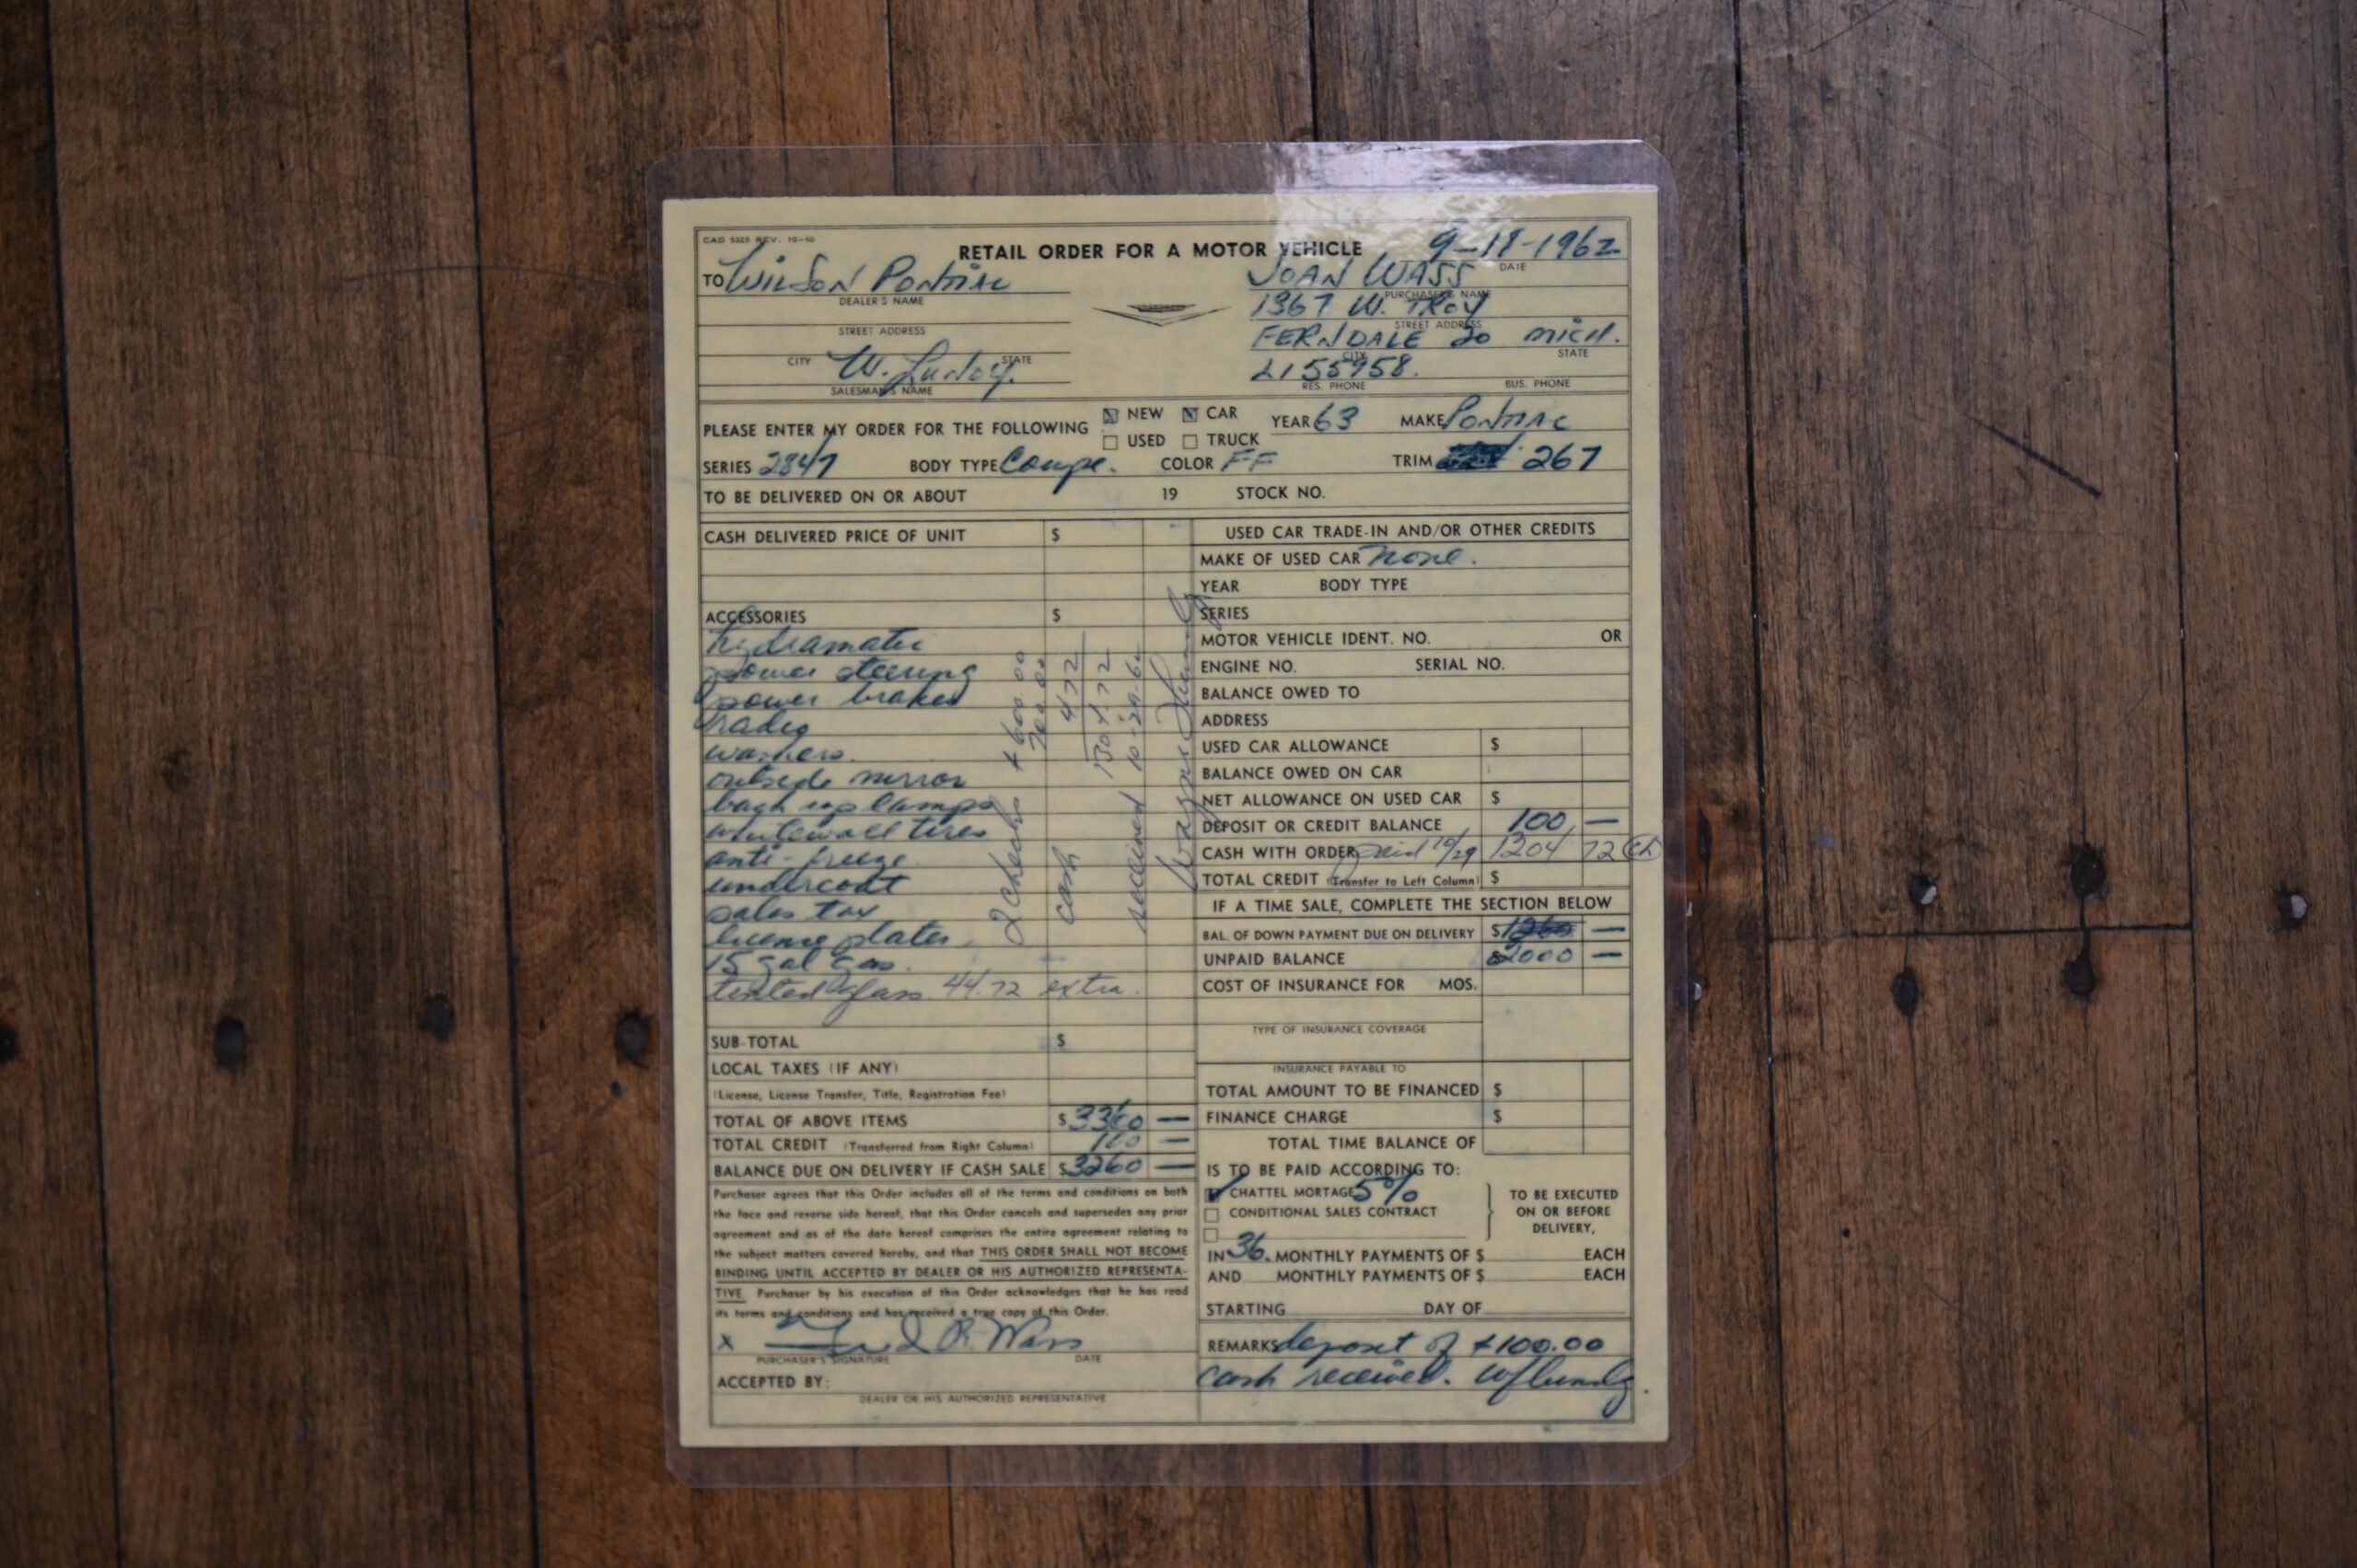 CAD 5325 REV. 10-60
RETAIL ORDER FOR A MOTOR VEHICLE
9-18-1962
DATE
TO Wilson Pontiac
DEALER'S NAME
STREET ADDRESS
CITY STATE
W.
SALESMAN'S NAME
JOAN WASS
PURCHASER'S NAME
1367 W. TROY
STREET ADDRESS
FERNDALE 20 MICH.
CITY STATE
LI 55958.
RES. PHONE BUS. PHONE
PLEASE ENTER MY ORDER FOR THE FOLLOWING
NEW CAR
USED TRUCK
YEAR 63 MAKE Pontiac
SERIES 2847 BODY TYPE Coupe. COLOR FF TRIM 267
TO BE DELIVERED ON OR ABOUT 19 STOCK NO.
CASH DELIVERED PRICE OF UNIT $
ACCESSORIES $
hydramatic
power steering
power brakes
radio
washers.
outside mirror
bach up lamps
whitewall tires
anti-freeze
undercoat
sales tax
license plates
15 gal gas.
tinted glass 44.72 extra.
2 checks 600.00
700.00
cash 4.72
1304.72
received 10-29-62
SUB-TOTAL $
LOCAL TAXES (IF ANY)
(License, License Transfer, Title, Registration Fee)
TOTAL OF ABOVE ITEMS $3360 —
TOTAL CREDIT (Transferred from Right Column) 100 —
BALANCE DUE ON DELIVERY IF CASH SALE $3260 —
Purchaser agrees that this Order includes all of the terms and conditions on both
the face and reverse side hereof, that this Order cancels and supersedes any prior
agreement and as of the date hereof comprises the entire agreement relating to
the subject matters covered hereby, and that THIS ORDER SHALL NOT BECOME
BINDING UNTIL ACCEPTED BY DEALER OR HIS AUTHORIZED REPRESENTA-
TIVE. Purchaser by his execution of this Order acknowledges that he has read
its terms and conditions and has received a true copy of this Order.
X R. Wass
PURCHASER'S SIGNATURE DATE
ACCEPTED BY:
DEALER OR HIS AUTHORIZED REPRESENTATIVE
USED CAR TRADE-IN AND/OR OTHER CREDITS
MAKE OF USED CAR none.
YEAR BODY TYPE
SERIES
MOTOR VEHICLE IDENT. NO. OR
ENGINE NO. SERIAL NO.
BALANCE OWED TO
ADDRESS
USED CAR ALLOWANCE $
BALANCE OWED ON CAR
NET ALLOWANCE ON USED CAR $
DEPOSIT OR CREDIT BALANCE 100 —
CASH WITH ORDER paid 10/29 1304 72
TOTAL CREDIT (Transfer to Left Column) $
IF A TIME SALE, COMPLETE THE SECTION BELOW
BAL. OF DOWN PAYMENT DUE ON DELIVERY $1260 —
UNPAID BALANCE 2000 —
COST OF INSURANCE FOR MOS.
TYPE OF INSURANCE COVERAGE
INSURANCE PAYABLE TO
TOTAL AMOUNT TO BE FINANCED $
FINANCE CHARGE $
TOTAL TIME BALANCE OF
IS TO BE PAID ACCORDING TO:
CHATTEL MORTAGE 5%
CONDITIONAL SALES CONTRACT
TO BE EXECUTED
ON OR BEFORE
DELIVERY,
IN 36. MONTHLY PAYMENTS OF $ EACH
AND MONTHLY PAYMENTS OF $ EACH
STARTING DAY OF
REMARKS deposit of $100.00
cash received.